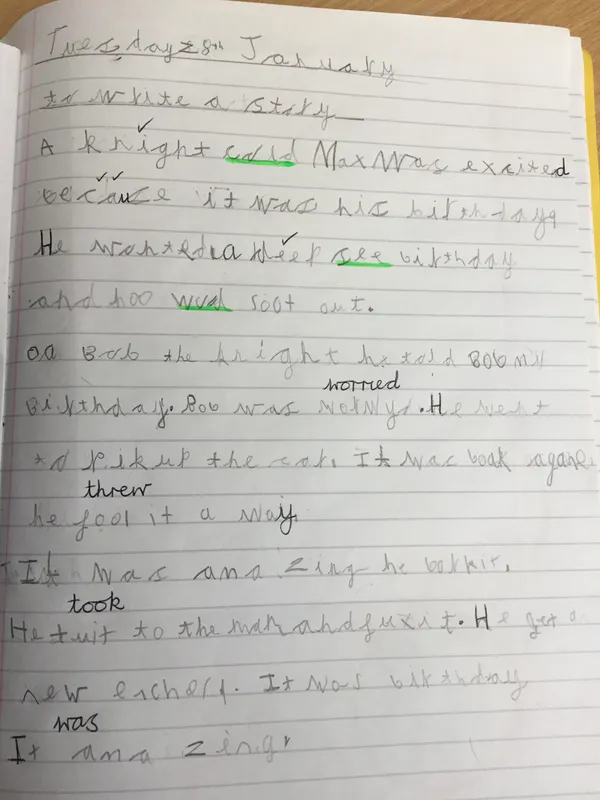 Tuesday 28th January
to write a story
A knight cald Max was excited
because it was his birthday
He wonted a sleep see birthday
and hoo wud soot out.
Bob the knight he told Bob my
worried
Birthday. Bob was wornyd. He went
to pik up the car. It was boak agane.
threw
he fool it a way.
It was ana zing he bok it.
took
He tuit to the man and fuxit. He get a
new. It was birthday
was
It ana zing